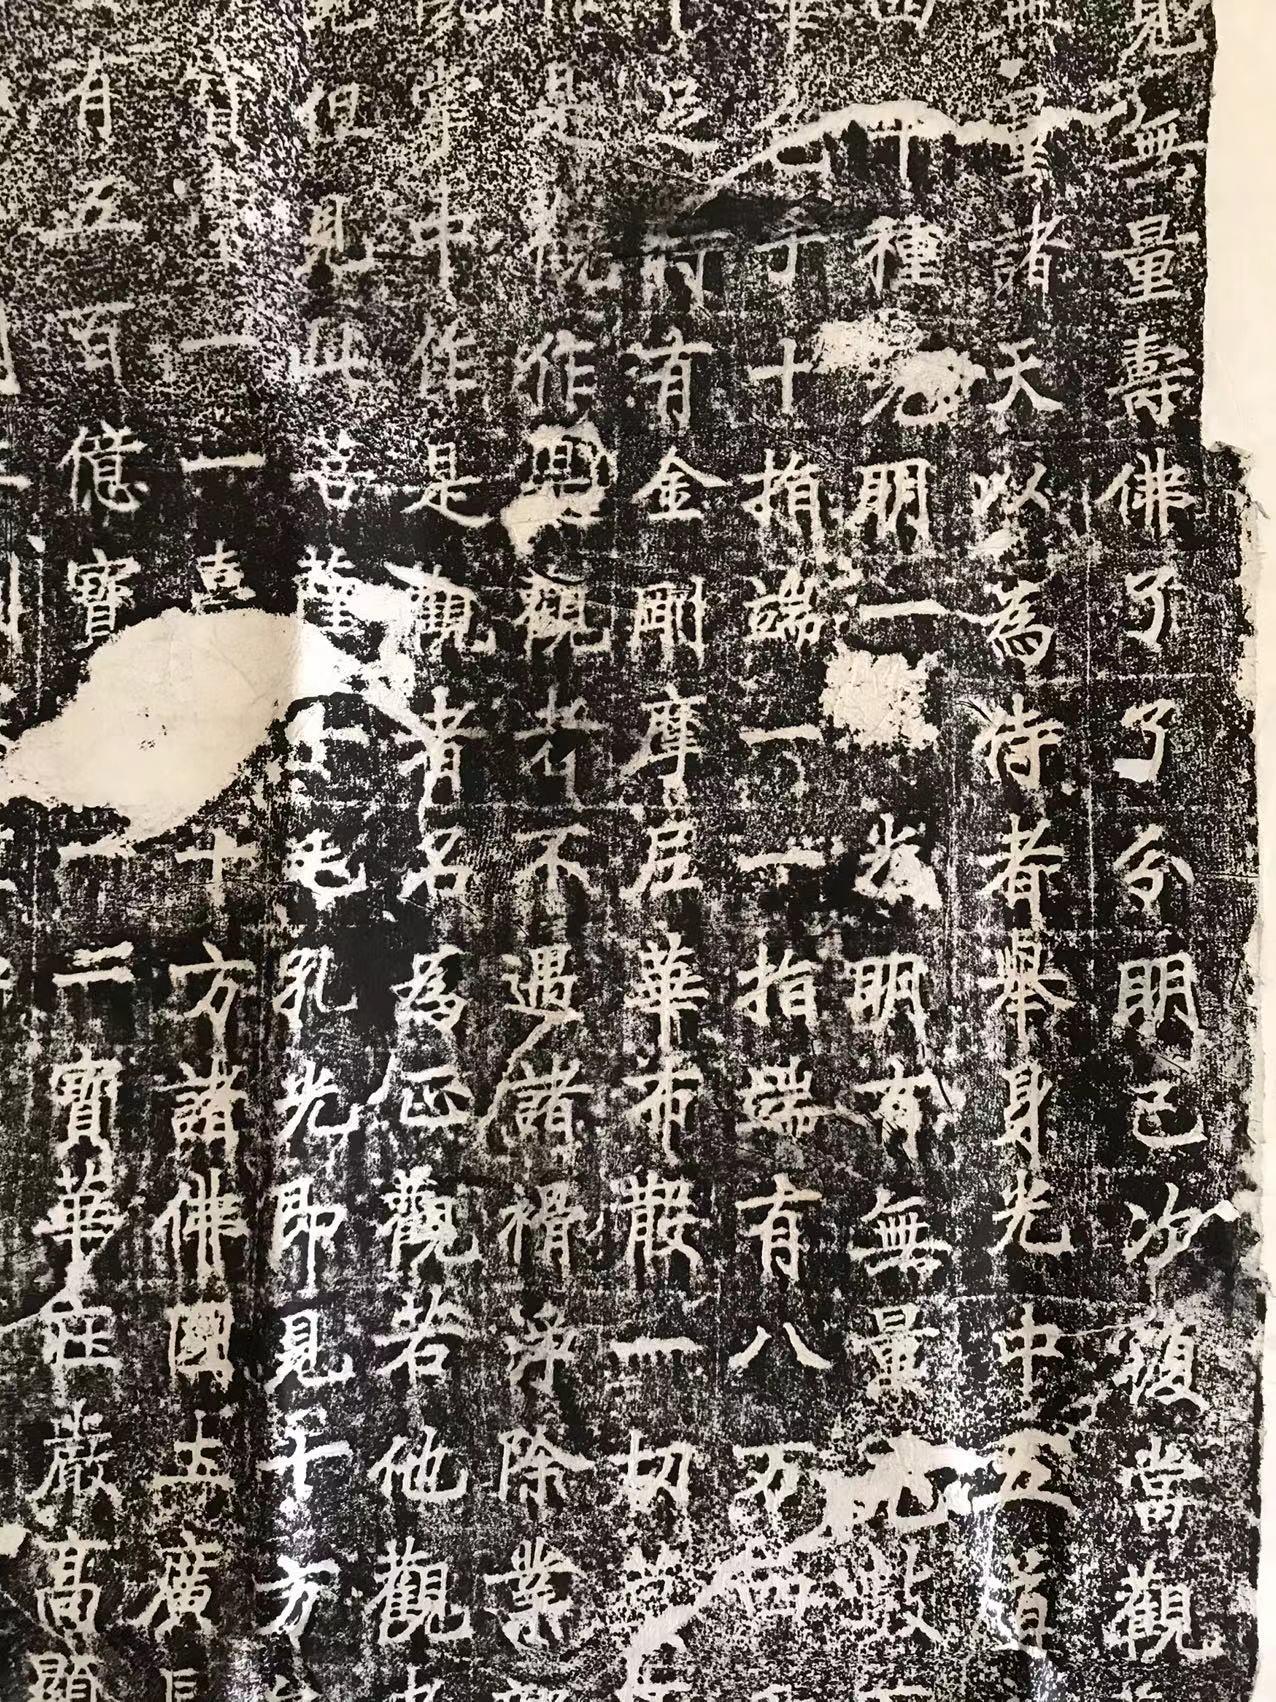 見無量壽佛了了分明已次復當觀
量諸天以為侍者舉身光中五道
千種光明一光明有無量无數
色手十指端一一指端有八万四
足時有金剛摩尼華布散一切莫
是觀作觀者不遇諸禍淨除業
掌中作是觀者名為正觀若他觀
但見此菩薩一毛孔光即見十方
一一臺十方諸佛國土廣長
有五百億寶一二寶華莊嚴高顯